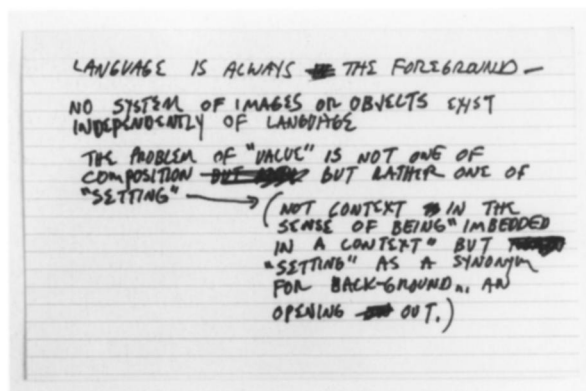 LANGUAGE IS ALWAYS THE FOREGROUND —
NO SYSTEM OF IMAGES OR OBJECTS EXIST
INDEPENDENTLY OF LANGUAGE
THE PROBLEM OF "VALUE" IS NOT ONE OF
COMPOSITION BUT RATHER ONE OF
"SETTING" →
(NOT CONTEXT IN THE
SENSE OF BEING "IMBEDDED
IN A CONTEXT" BUT
"SETTING" AS A SYNONYM
FOR BACK-GROUND... AN
OPENING OUT.)